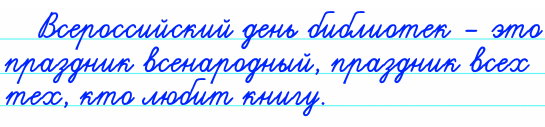 Всероссийский день библиотек – это
праздник всенародный, праздник всех
тех, кто любит книгу.